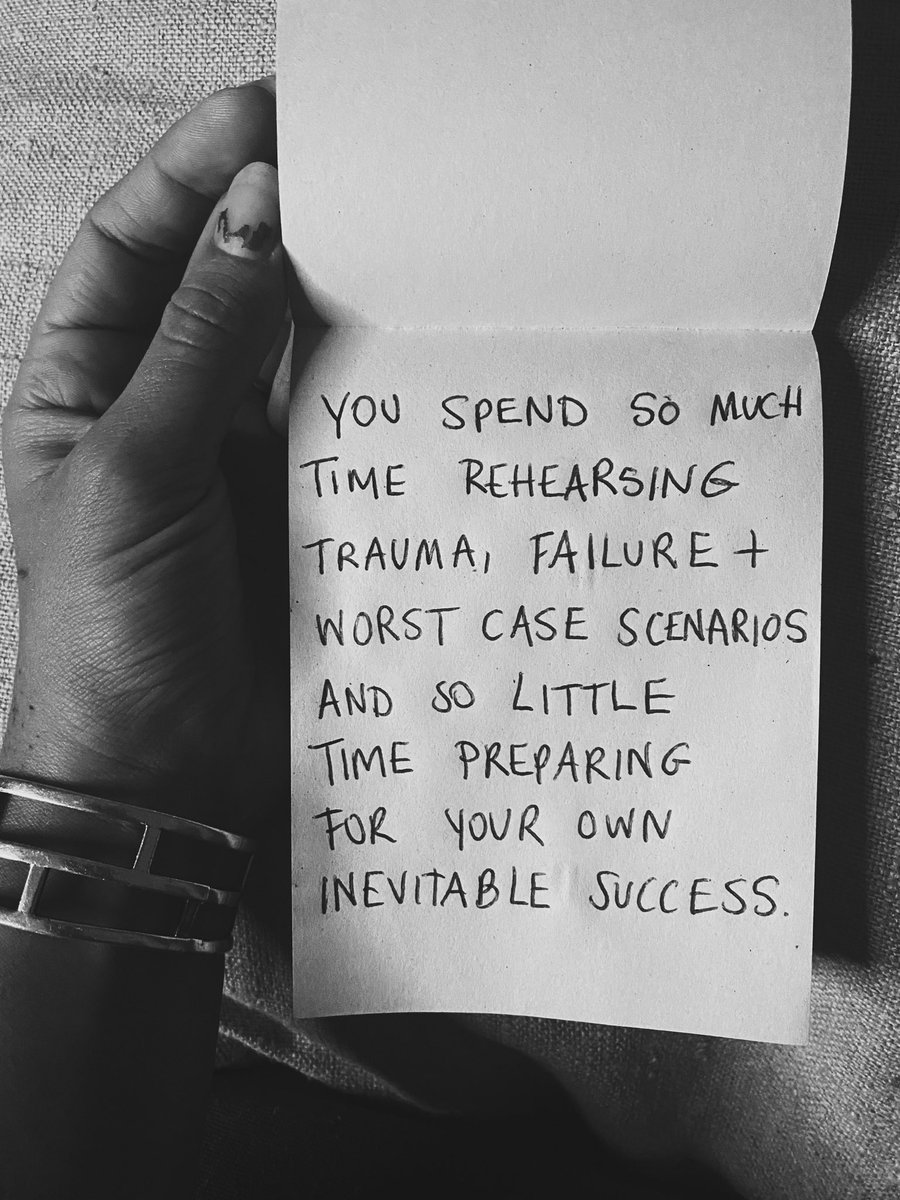 YOU SPEND SO MUCH
TIME REHEARSING
TRAUMA, FAILURE +
WORST CASE SCENARIOS
AND SO LITTLE
TIME PREPARING
FOR YOUR OWN
INEVITABLE SUCCESS.